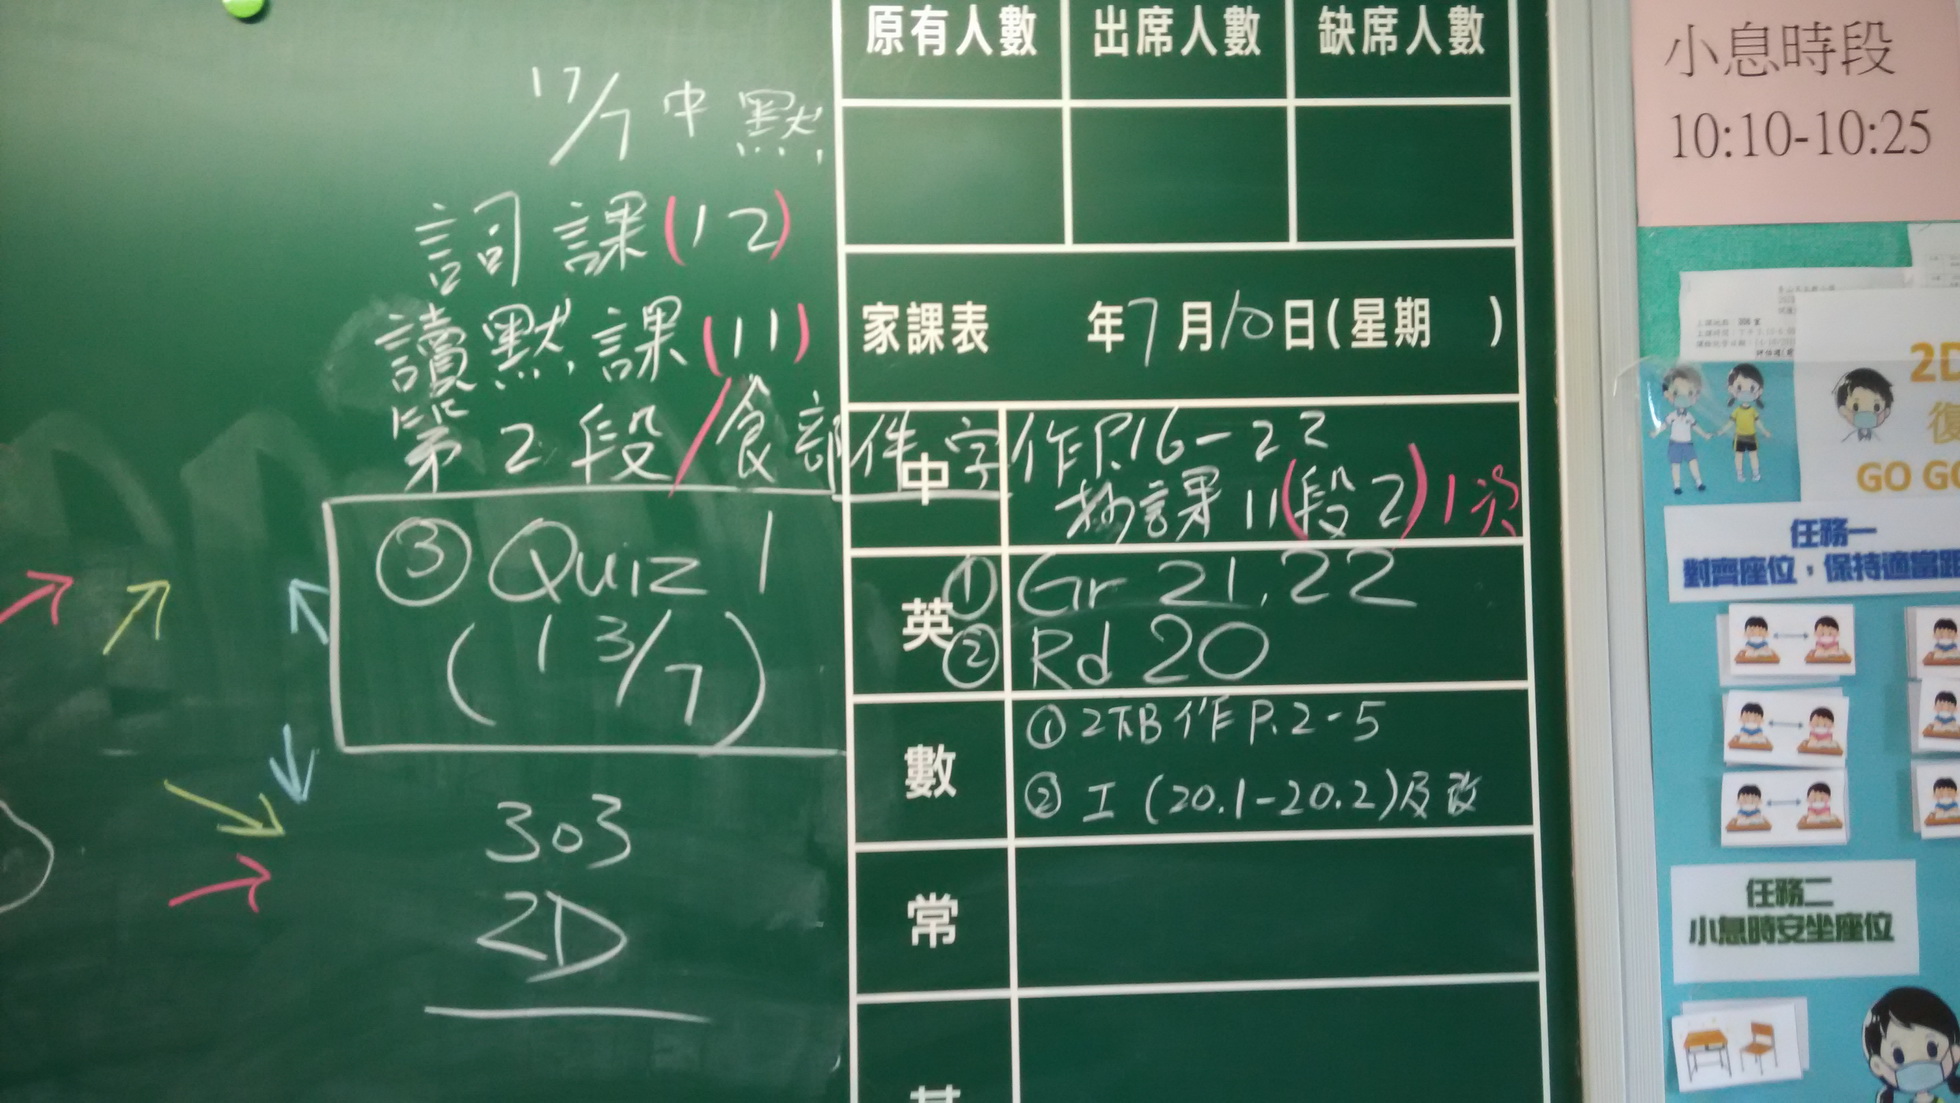 17/7 中默
詞 課(12)
讀默 課(11)
第2段/食部件字
③ Quiz 1
(13/7)
303
2D
原有人數 出席人數 缺席人數
家課表 年7月10日(星期 )
中 作P.16-22
抄課11(段2)1次
英 ① Gr 21, 22
② Rd 20
數 ① 2下B作P.2-5
② 工(20.1-20.2)及改
常
其
小息時段
10:10-10:25
2D
復
GO GO
任務一
對齊座位，保持適當距
任務二
小息時安坐座位